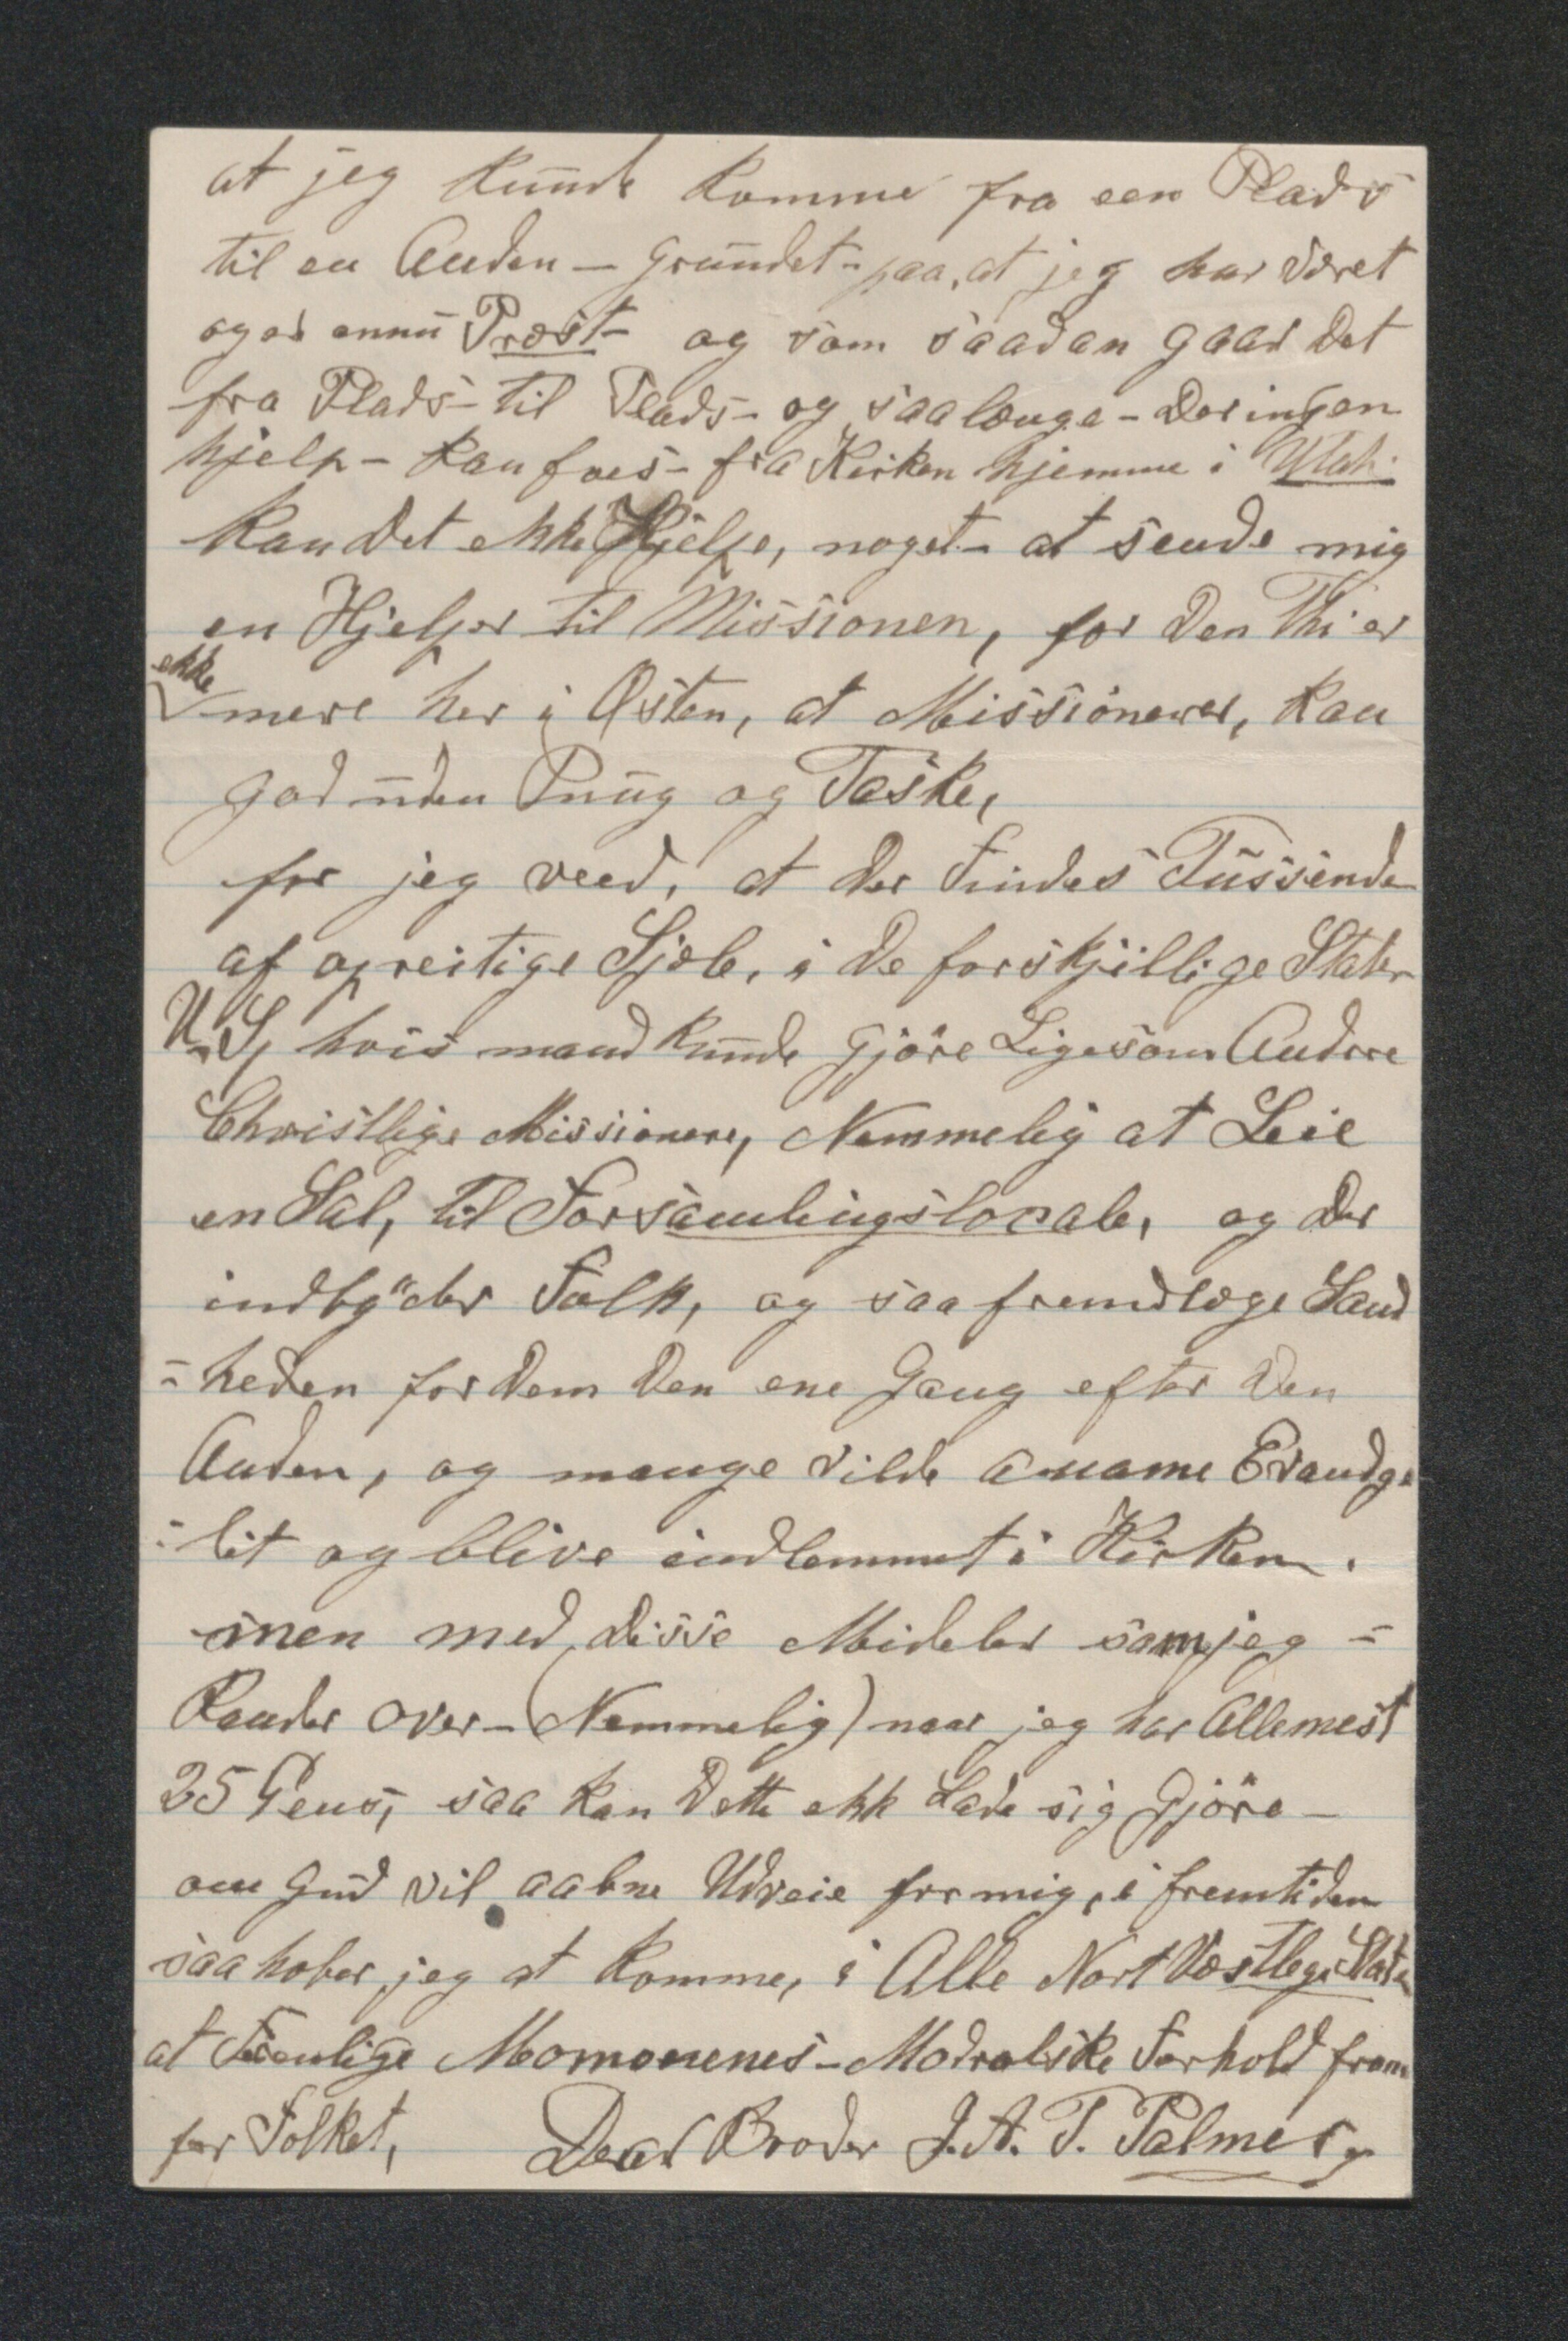 at jeg kunde komme fra een Plads
til en Anden — grundet - paa, at jeg har været
og er ennu Præst - og som saadan gaar det
fra Plads - til Plads - og saalænge - der ingen
hjelp - kan faes - fra Kirken hjemme i Utah
kan det ekke Hjelpe, noget - at sende mig
en Hjelper til Missionen, for den Thi er
ekke
mere her i Østen, at Missionerer, kan
gaa uden Pung og Taske,
for jeg veed, at der Findes Tussende
af opreitige Sjæle, i de forskjillige Stater
U.S, hvis mand kunde gjöre Ligesom Andrre
Christlige Missionere, Nemmelig at Leie
en Sal, til Forsamlingslocale, og der
indbyder Folk, og saa fremdlæge Sand
=heden for dem den ene Gang efter den
Anden, og mange vilde anname Evandge
=lit og blive indlemmet i Kirken.
men med disse Mideler som jeg =
Raader over - (Nemmelig) naar jeg har Allemest
25 Cens, saa kan dette ekk Lade sig Gjöre -
om Gud vil aabne Udveie for mig, i fremtiden
saa hober jeg at komme, i Alle Nort Vestlege Stater
at Momonenes - Modralske Forhold frem
for Folket, Dear Broder J. A. T. Palmer,